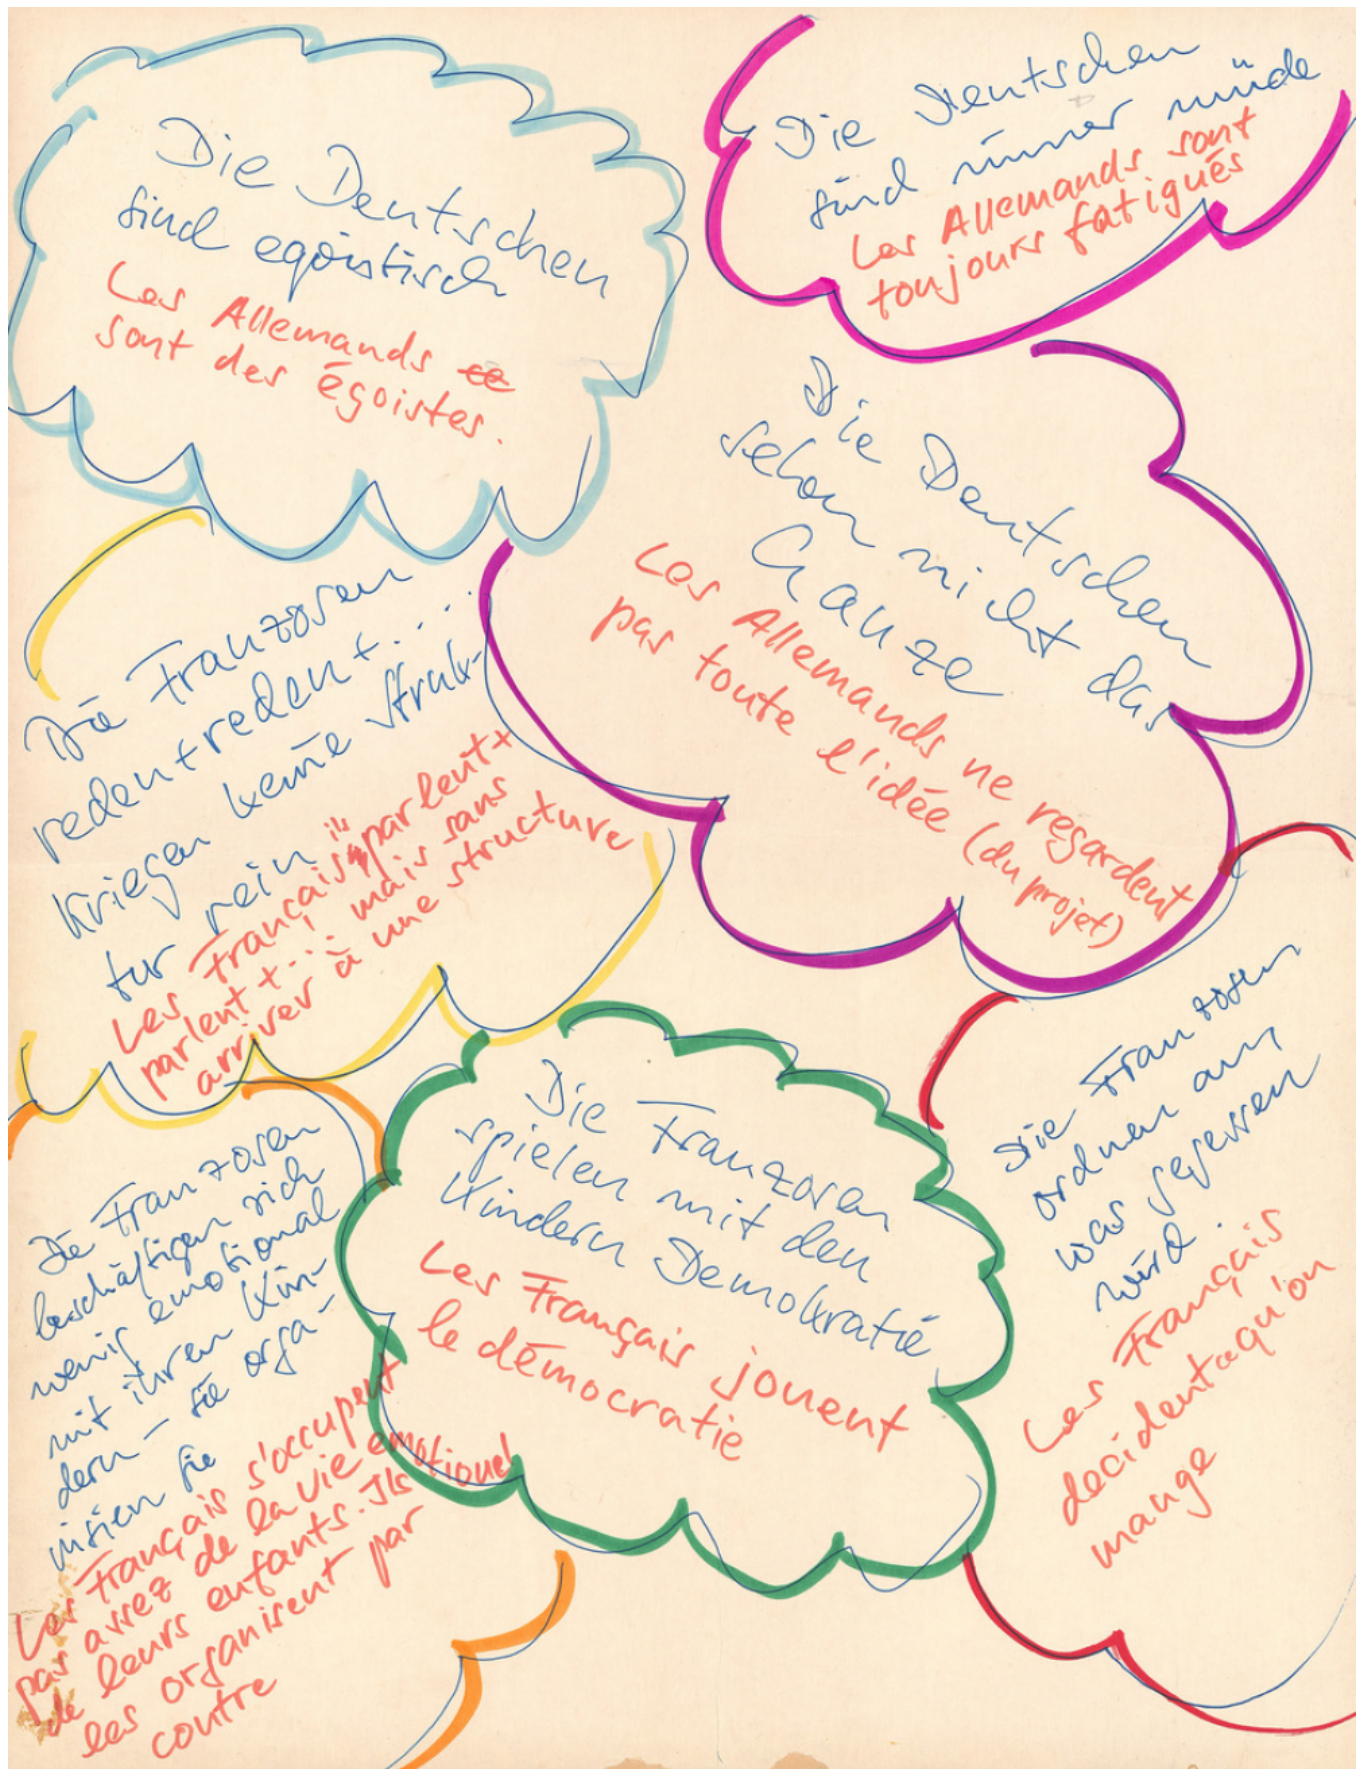 Die Deutschen
sind egoistisch
Les Allemands
sont des égoistes.
Die Deutschen
sind immer müde
Les Allemands sont
toujours fatigués
Die Deutschen
sehen nicht das
Ganze
Les Allemands ne regardent
pas toute l'idée (du projet)
Die Franzosen
reden + reden + . . . .
kriegen keine Struk-
tur rein
Les Français ils parlent +
parlent + ... mais sans
arriver à une structure
Die Franzosen
spielen mit den
Kindern Demokratie
Les Français jouent
le démocratie
Die Franzosen
ordnen an,
was gegessen
wird.
Les Français
decident qu'on
mange
Die Franzosen
beschäftigen sich
wenig emotional
mit ihren Kin-
dern – sie orga-
nisieren sie
Les Français s'occupent
pas assez de la vie emotionel
de leurs enfants. Ils
les organisent par
contre